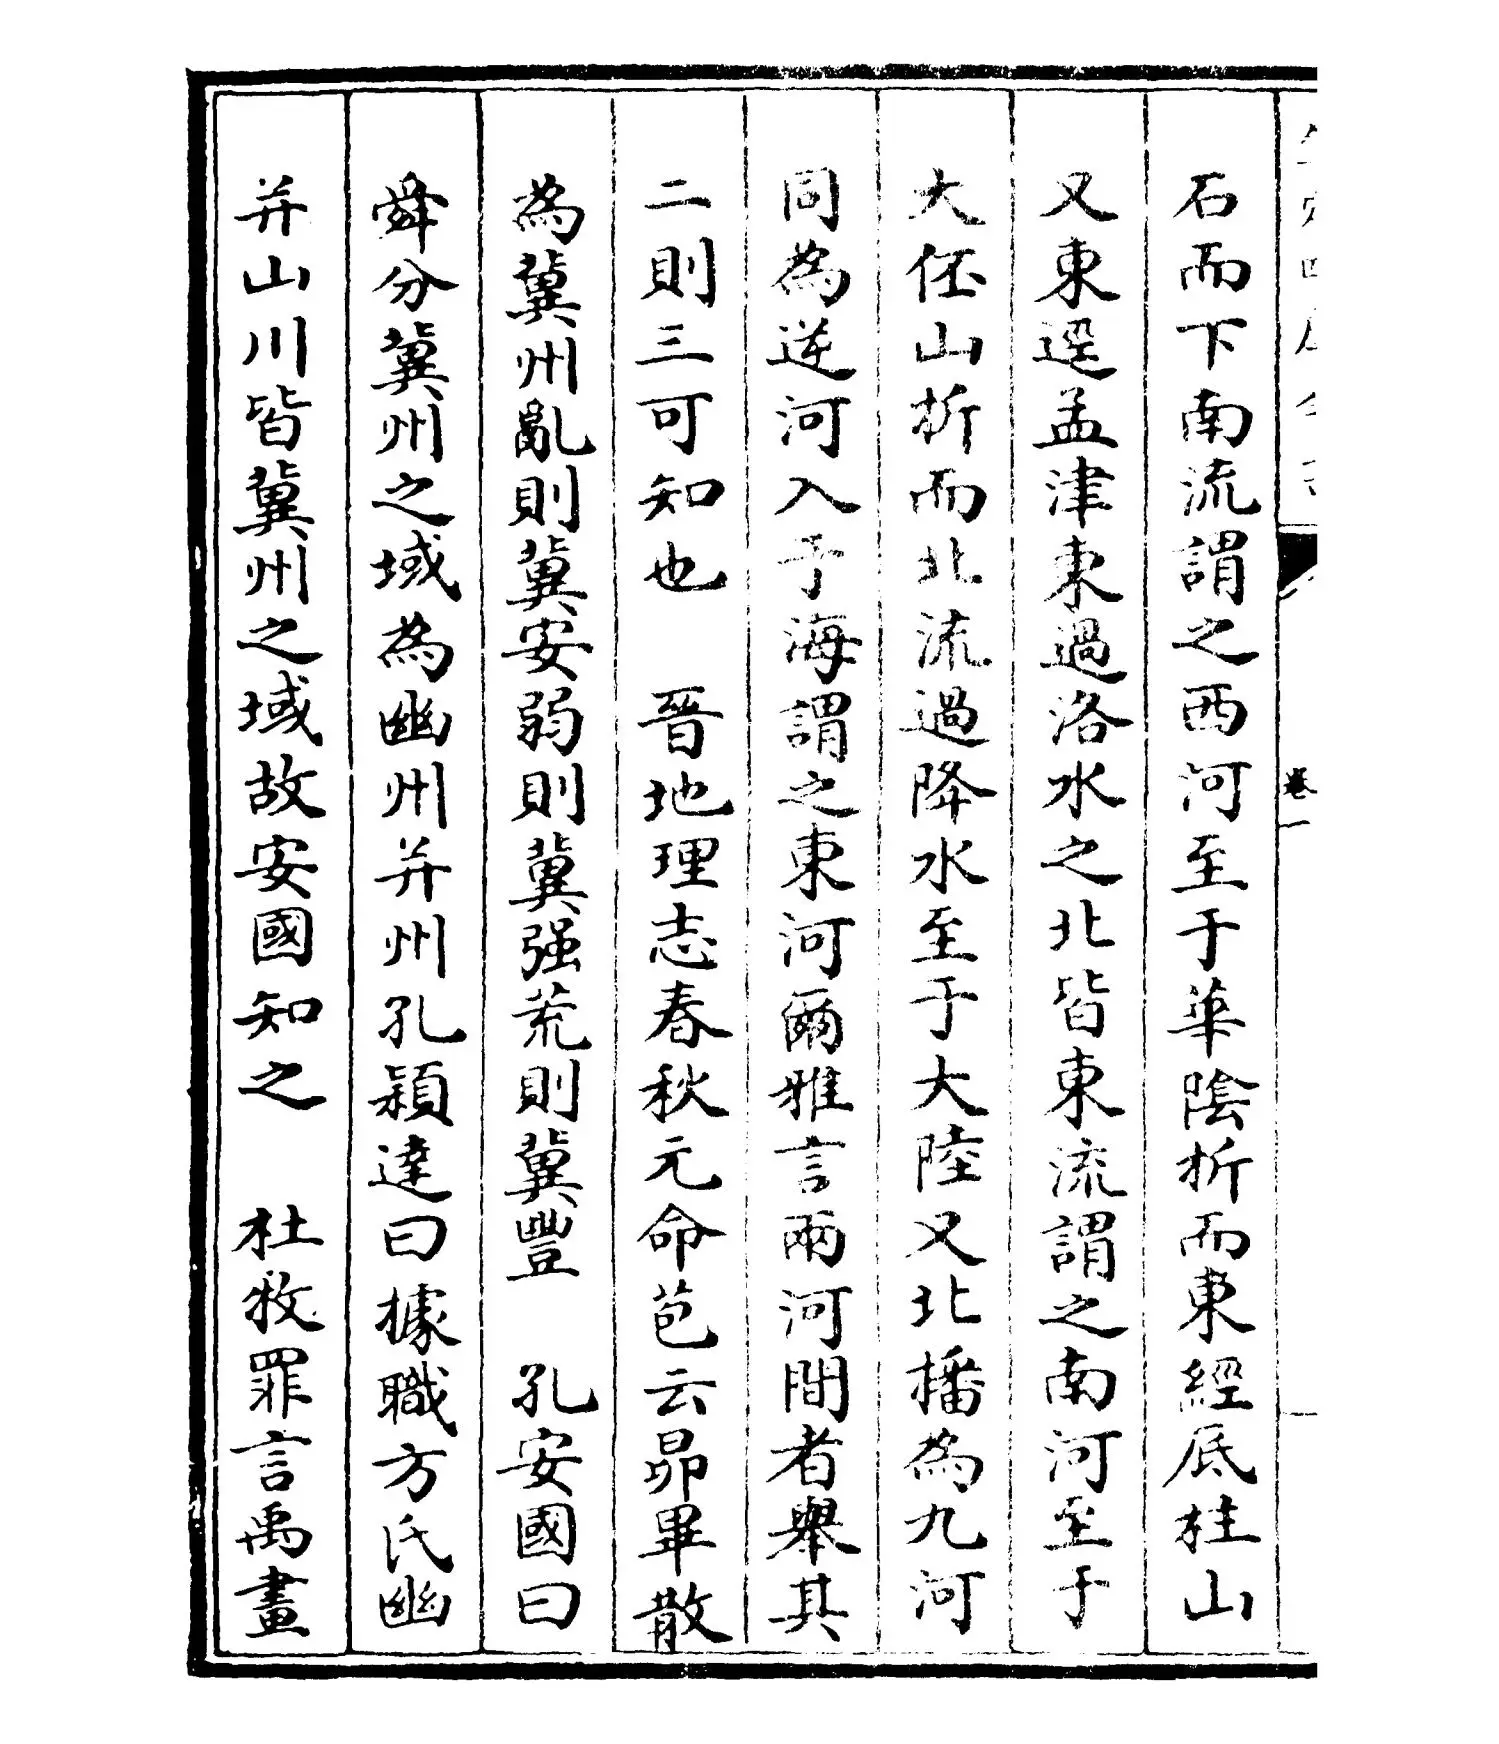 石而下南流謂之西河至于華陰折而東經底柱山
又東逕孟津東過洛水之北皆東流謂之南河至于
大伾山折而北流過降水至于大陸又北播為九河
同為逆河入于海謂之東河爾雅言兩河間者舉其
二則三可知也　晉地理志春秋元命苞云昴畢散
為冀州亂則冀安弱則冀强荒則冀豐　孔安國曰
舜分冀州之域為幽州并州孔穎達曰據職方氏幽
并山川皆冀州之域故安國知之　杜牧罪言禹畫
卷一